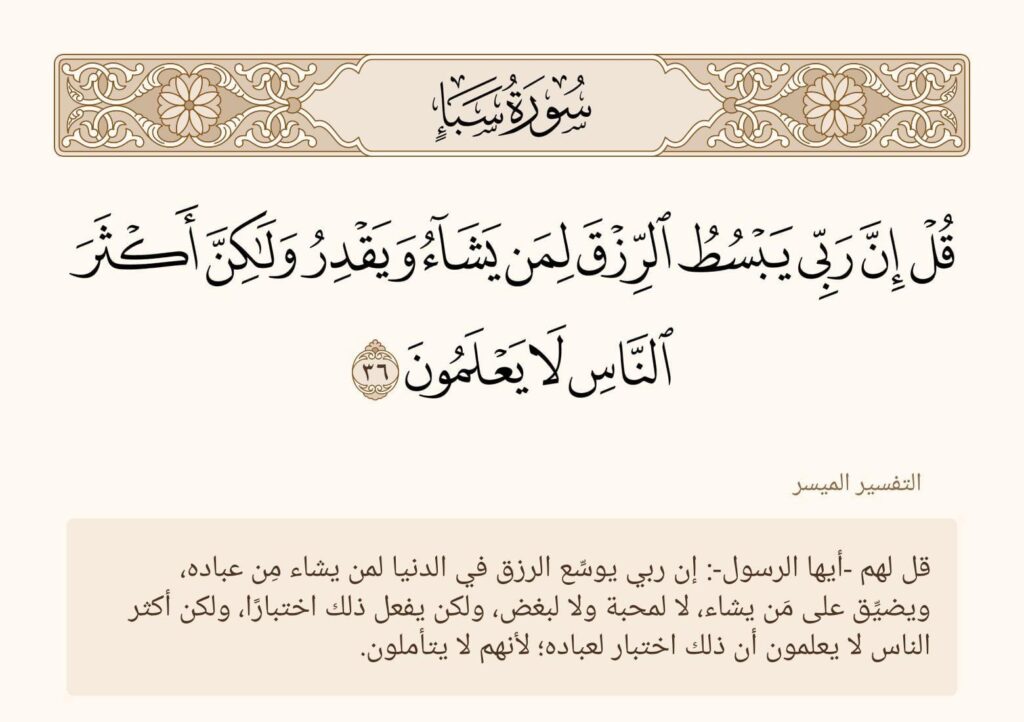 سُورَةُ سَبَإٍ
قُلۡ إِنَّ رَبِّي يَبۡسُطُ ٱلرِّزۡقَ لِمَن يَشَآءُ وَيَقۡدِرُ وَلَٰكِنَّ أَكۡثَرَ
ٱلنَّاسِ لَا يَعۡلَمُونَ ٣٦
التفسير الميسر
قل لهم -أيها الرسول-: إن ربي يوسِّع الرزق في الدنيا لمن يشاء مِن عباده،
ويضيِّق على مَن يشاء، لا لمحبة ولا لبغض، ولكن يفعل ذلك اختبارًا، ولكن أكثر
الناس لا يعلمون أن ذلك اختبار لعباده؛ لأنهم لا يتأملون.